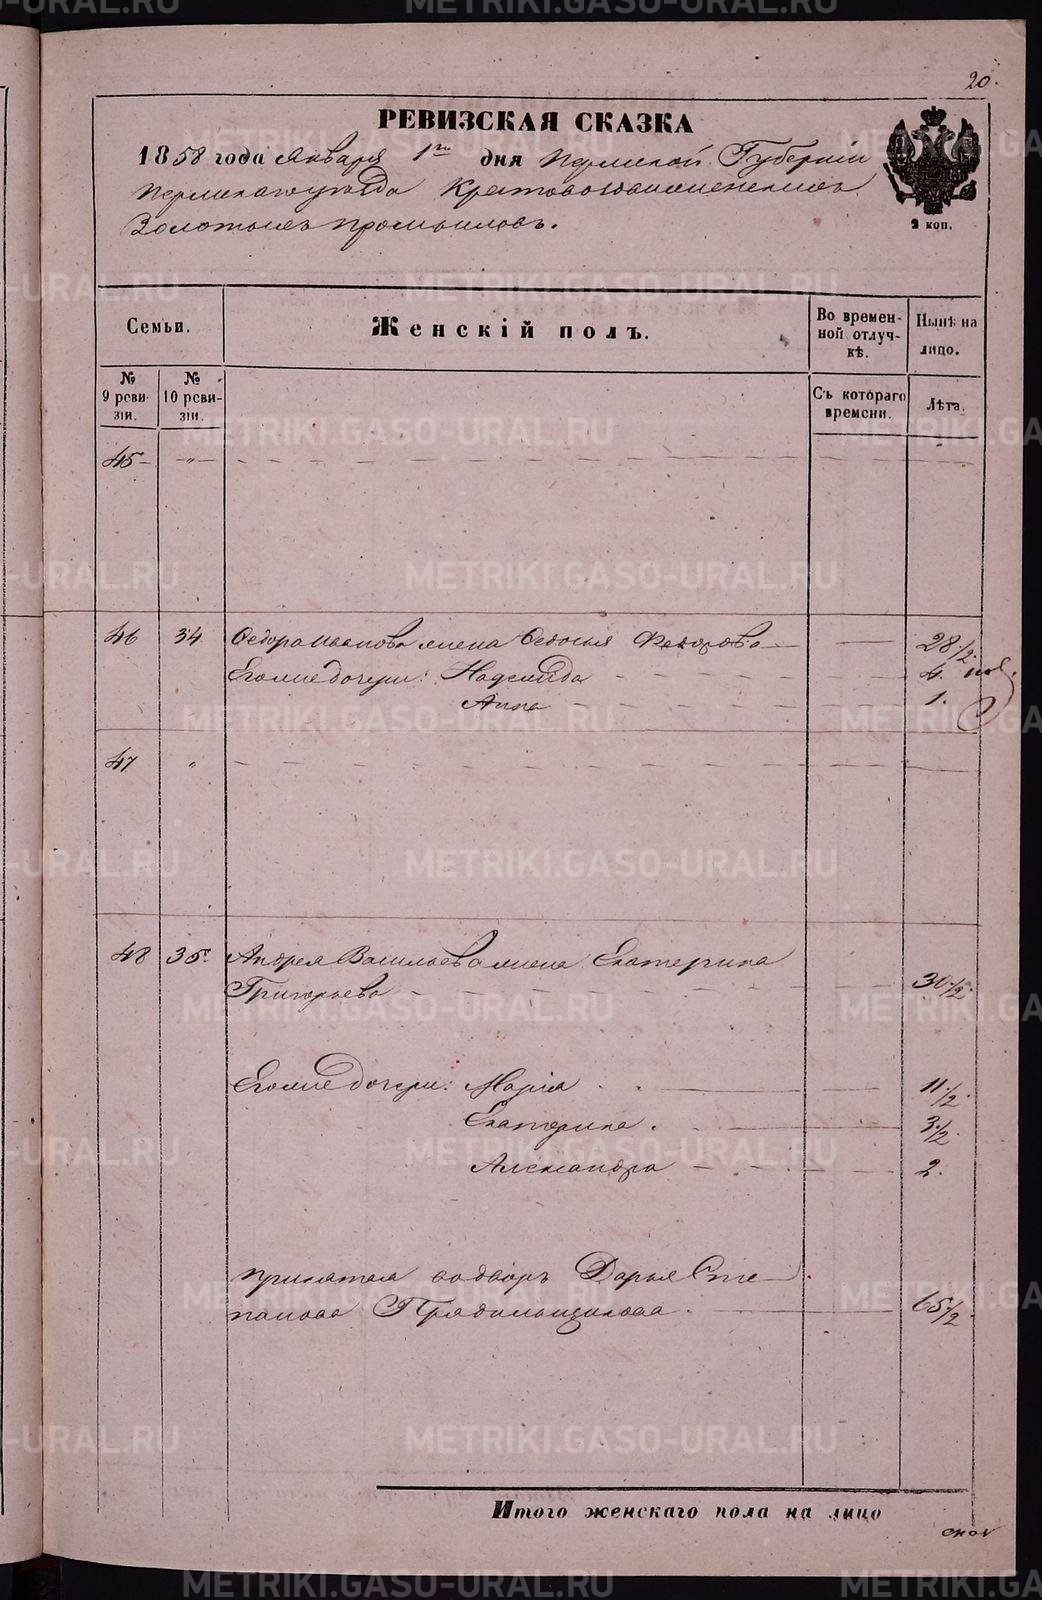 20.
РЕВИЗСКАЯ СКАЗКА
1858 года Января 1го дня Пермской Губерніи
Пермскаго уѣзда Крестовоздвиженскихъ
Золотыхъ промысловъ.
2 коп.
Семьи.
Женскій полъ.
Во временной отлучкѣ.
Нынѣ на лицо.
№ 9 ревизіи.
№ 10 ревизіи.
Съ котораго времени.
Лѣта.
45 - „ -
46 34 Федора Иванова жена Федосья Федорова 28 1/2.
Его же дочери: Надежда 4.
Анна 1.
47 „
48 35. Андрея Васильева жена Екатерина
Григорьева 30 1/2.
Его же дочери: Марія 11 1/2.
Екатерина. 3 1/2.
Александра 2.
принятая во дворъ Дарья Сте-
панова Прядильщикова. 65 1/2.
Итого женскаго пола на лицо
METRIKI.GASO-URAL.RU